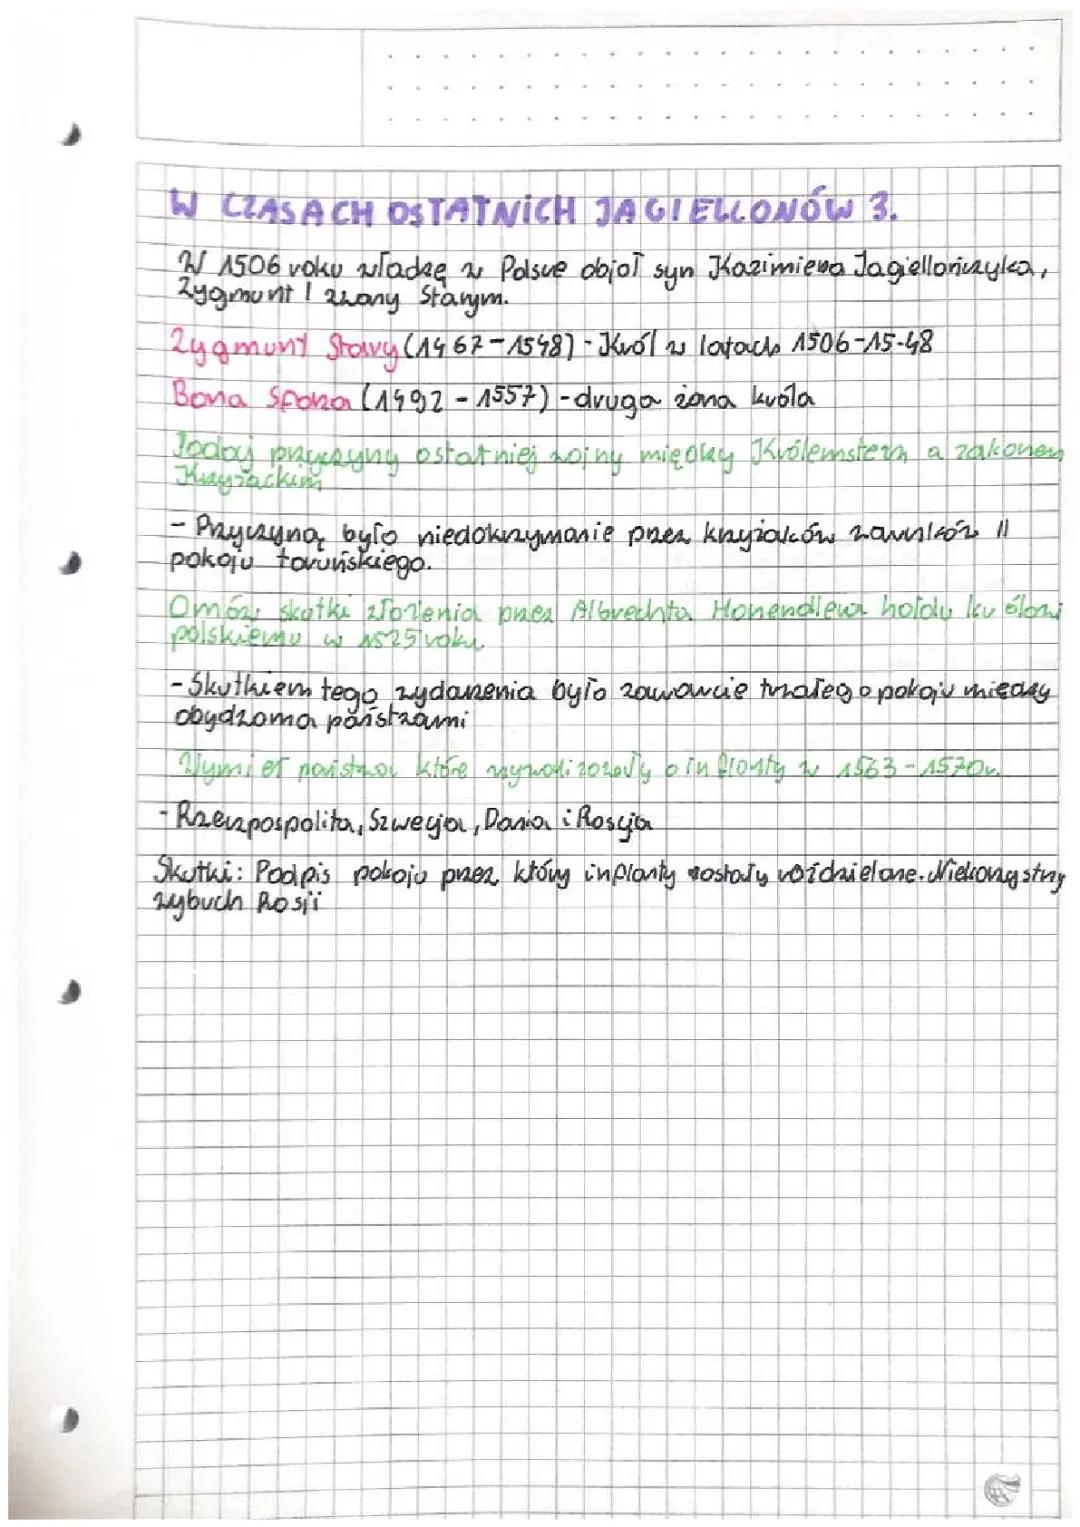 W CZASACH OSTATNICH JAGIELLONÓW 3.
W 1506 roku władzę w Polsce objoł syn Kazimierza Jagiellończyka,
Zygmunt I zwany Starym.
Zygmunt Stary (1467-1548) - Król w latach 1506-15-48
Bona Sforza (1492 - 1557) - druga żona króla
Podaj przyczyny ostatniej wojny między Królewstem a zakonem
Krzyżackim
- Przyczyną było niedotrzymanie przez krzyżaków warunków II
pokoju toruńskiego.
Omów skutki złożenia przez Albrechta hołdu królowi
polskiemu w 1525 roku
- Skutkiem tego wydarzenia było zawarcie trwałego pokoju między
obydwoma państwami
Wymień państwa które rywalizowały o inflanty w 1563-1570r.
- Rzeczpospolita, Szwecja, Dania i Rosja
Skutki: Podpis pokoju przez który inflanty zostały rozdzielone. Niekorzystny
wybuch Rosji